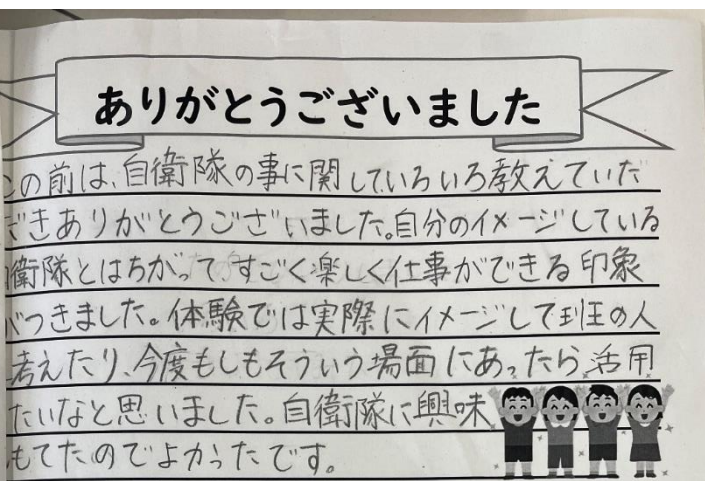 ありがとうございました
この前は、自衛隊の事に関していろいろ教えていだ
だきありがとうございました。自分のイメージしている
衛隊とはちがって、すごく楽しく仕事ができる印象
がつきました。体験では実際にイメージして班の人
考えたり、今度もしもそういう場面にあったら、活用
たいなと思いました。自衛隊に興味
もてたのでよかったです。